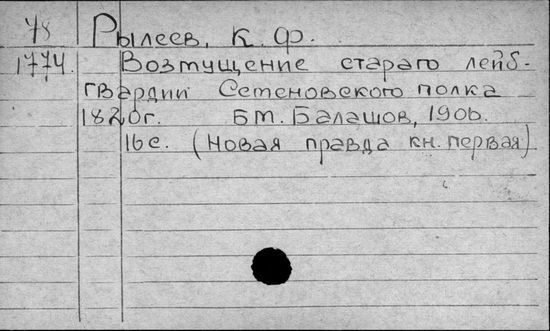 78 Рылеев, К. Ф.
1774. Возмущение стараго лейб-
гвардии Семеновского полка
1820г. Б.т. Балашов, 1906.
16с. (Новая правда кн. первая)